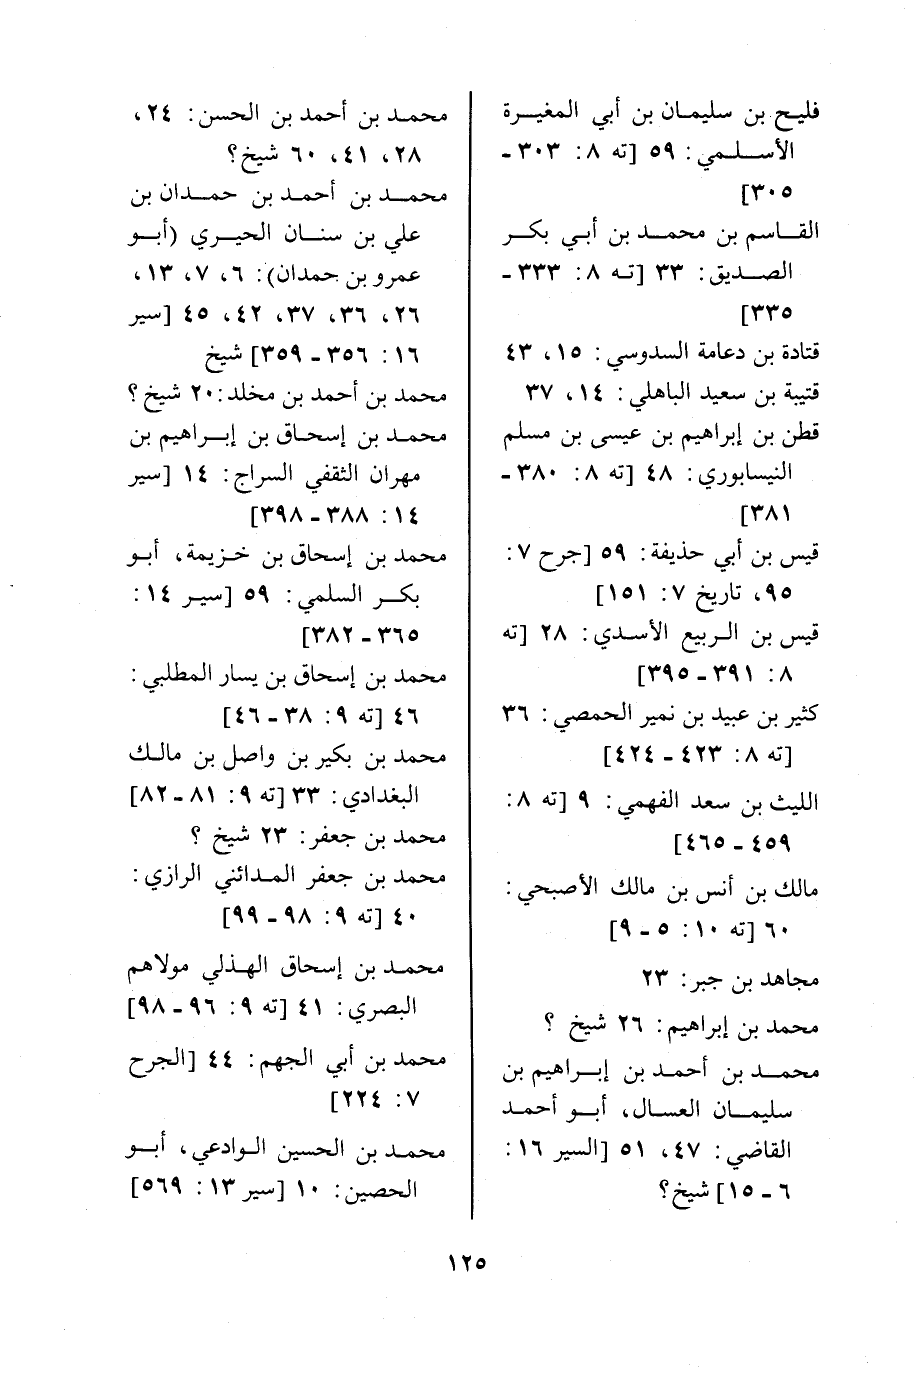 فليح بن سليمان بن أبي المغيرة
الأسلمي: ٥٩ [ته ٨: ٣٠٣ ـ
٣٠٥]
القاسم بن محمد بن أبي بكر
الصديق: ٣٣ [ته ٨: ٣٣٣ ـ
٣٣٥]
قتادة بن دعامة السدوسي: ١٥، ٤٣
قتيبة بن سعيد الباهلي: ١٤، ٣٧
قطن بن إبراهيم بن عيسى بن مسلم
النيسابوري: ٤٨ [ته ٨: ٣٨٠ ـ
٣٨١]
قيس بن أبي حذيفة: ٥٩ [جرح ٧:
٩٥، تاريخ ٧: ١٥١]
قيس بن الربيع الأسدي: ٢٨ [ته
٨: ٣٩١ ـ ٣٩٥]
كثير بن عبيد بن نمير الحمصي: ٣٦
[ته ٨: ٤٢٣ ـ ٤٢٤]
الليث بن سعد الفهمي: ٩ [ته ٨:
٤٥٩ ـ ٤٦٥]
مالك بن أنس بن مالك الأصبحي:
٦٠ [ته ١٠: ٥ ـ ٩]
مجاهد بن جبر: ٢٣
محمد بن إبراهيم: ٢٦ شيخ ؟
محمد بن أحمد بن إبراهيم بن
سليمان العسال، أبو أحمد
القاضي: ٤٧، ٥١ [السير ١٦:
٦ ـ ١٥] شيخ؟
محمد بن أحمد بن الحسن: ٢٤،
٢٨، ٤١، ٦٠ شيخ؟
محمد بن أحمد بن حمدان بن
علي بن سنان الحيري (أبو
عمرو بن حمدان): ٦، ٧، ١٣،
٢٦، ٣٦، ٣٧، ٤٢، ٤٥ [سير
١٦: ٣٥٦ ـ ٣٥٩] شيخ
محمد بن أحمد بن مخلد: ٢٠ شيخ ؟
محمد بن إسحاق بن إبراهيم بن
مهران الثقفي السراج: ١٤ [سير
١٤: ٣٨٨ ـ ٣٩٨]
محمد بن إسحاق بن خزيمة، أبو
بكر السلمي: ٥٩ [سير ١٤:
٣٦٥ ـ ٣٨٢]
محمد بن إسحاق بن يسار المطلبي:
٤٦ [ته ٩: ٣٨ ـ ٤٦]
محمد بن بكير بن واصل بن مالك
البغدادي: ٣٣ [ته ٩: ٨١ ـ ٨٢]
محمد بن جعفر: ٢٣ شيخ ؟
محمد بن جعفر المدائني الرازي:
٤٠ [ته ٩: ٩٨ ـ ٩٩]
محمد بن إسحاق الهذلي مولاهم
البصري: ٤١ [ته ٩: ٩٦ ـ ٩٨]
محمد بن أبي الجهم: ٤٤ [الجرح
٧: ٢٢٤]
محمد بن الحسين الوادعي، أبو
الحصين: ١٠ [سير ١٣: ٥٦٩]
١٢٥